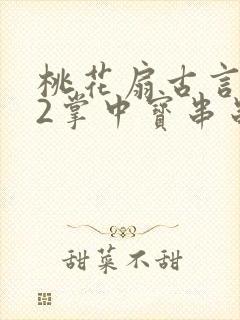 桃花扇古言
2掌中寶串
甜菜不甜